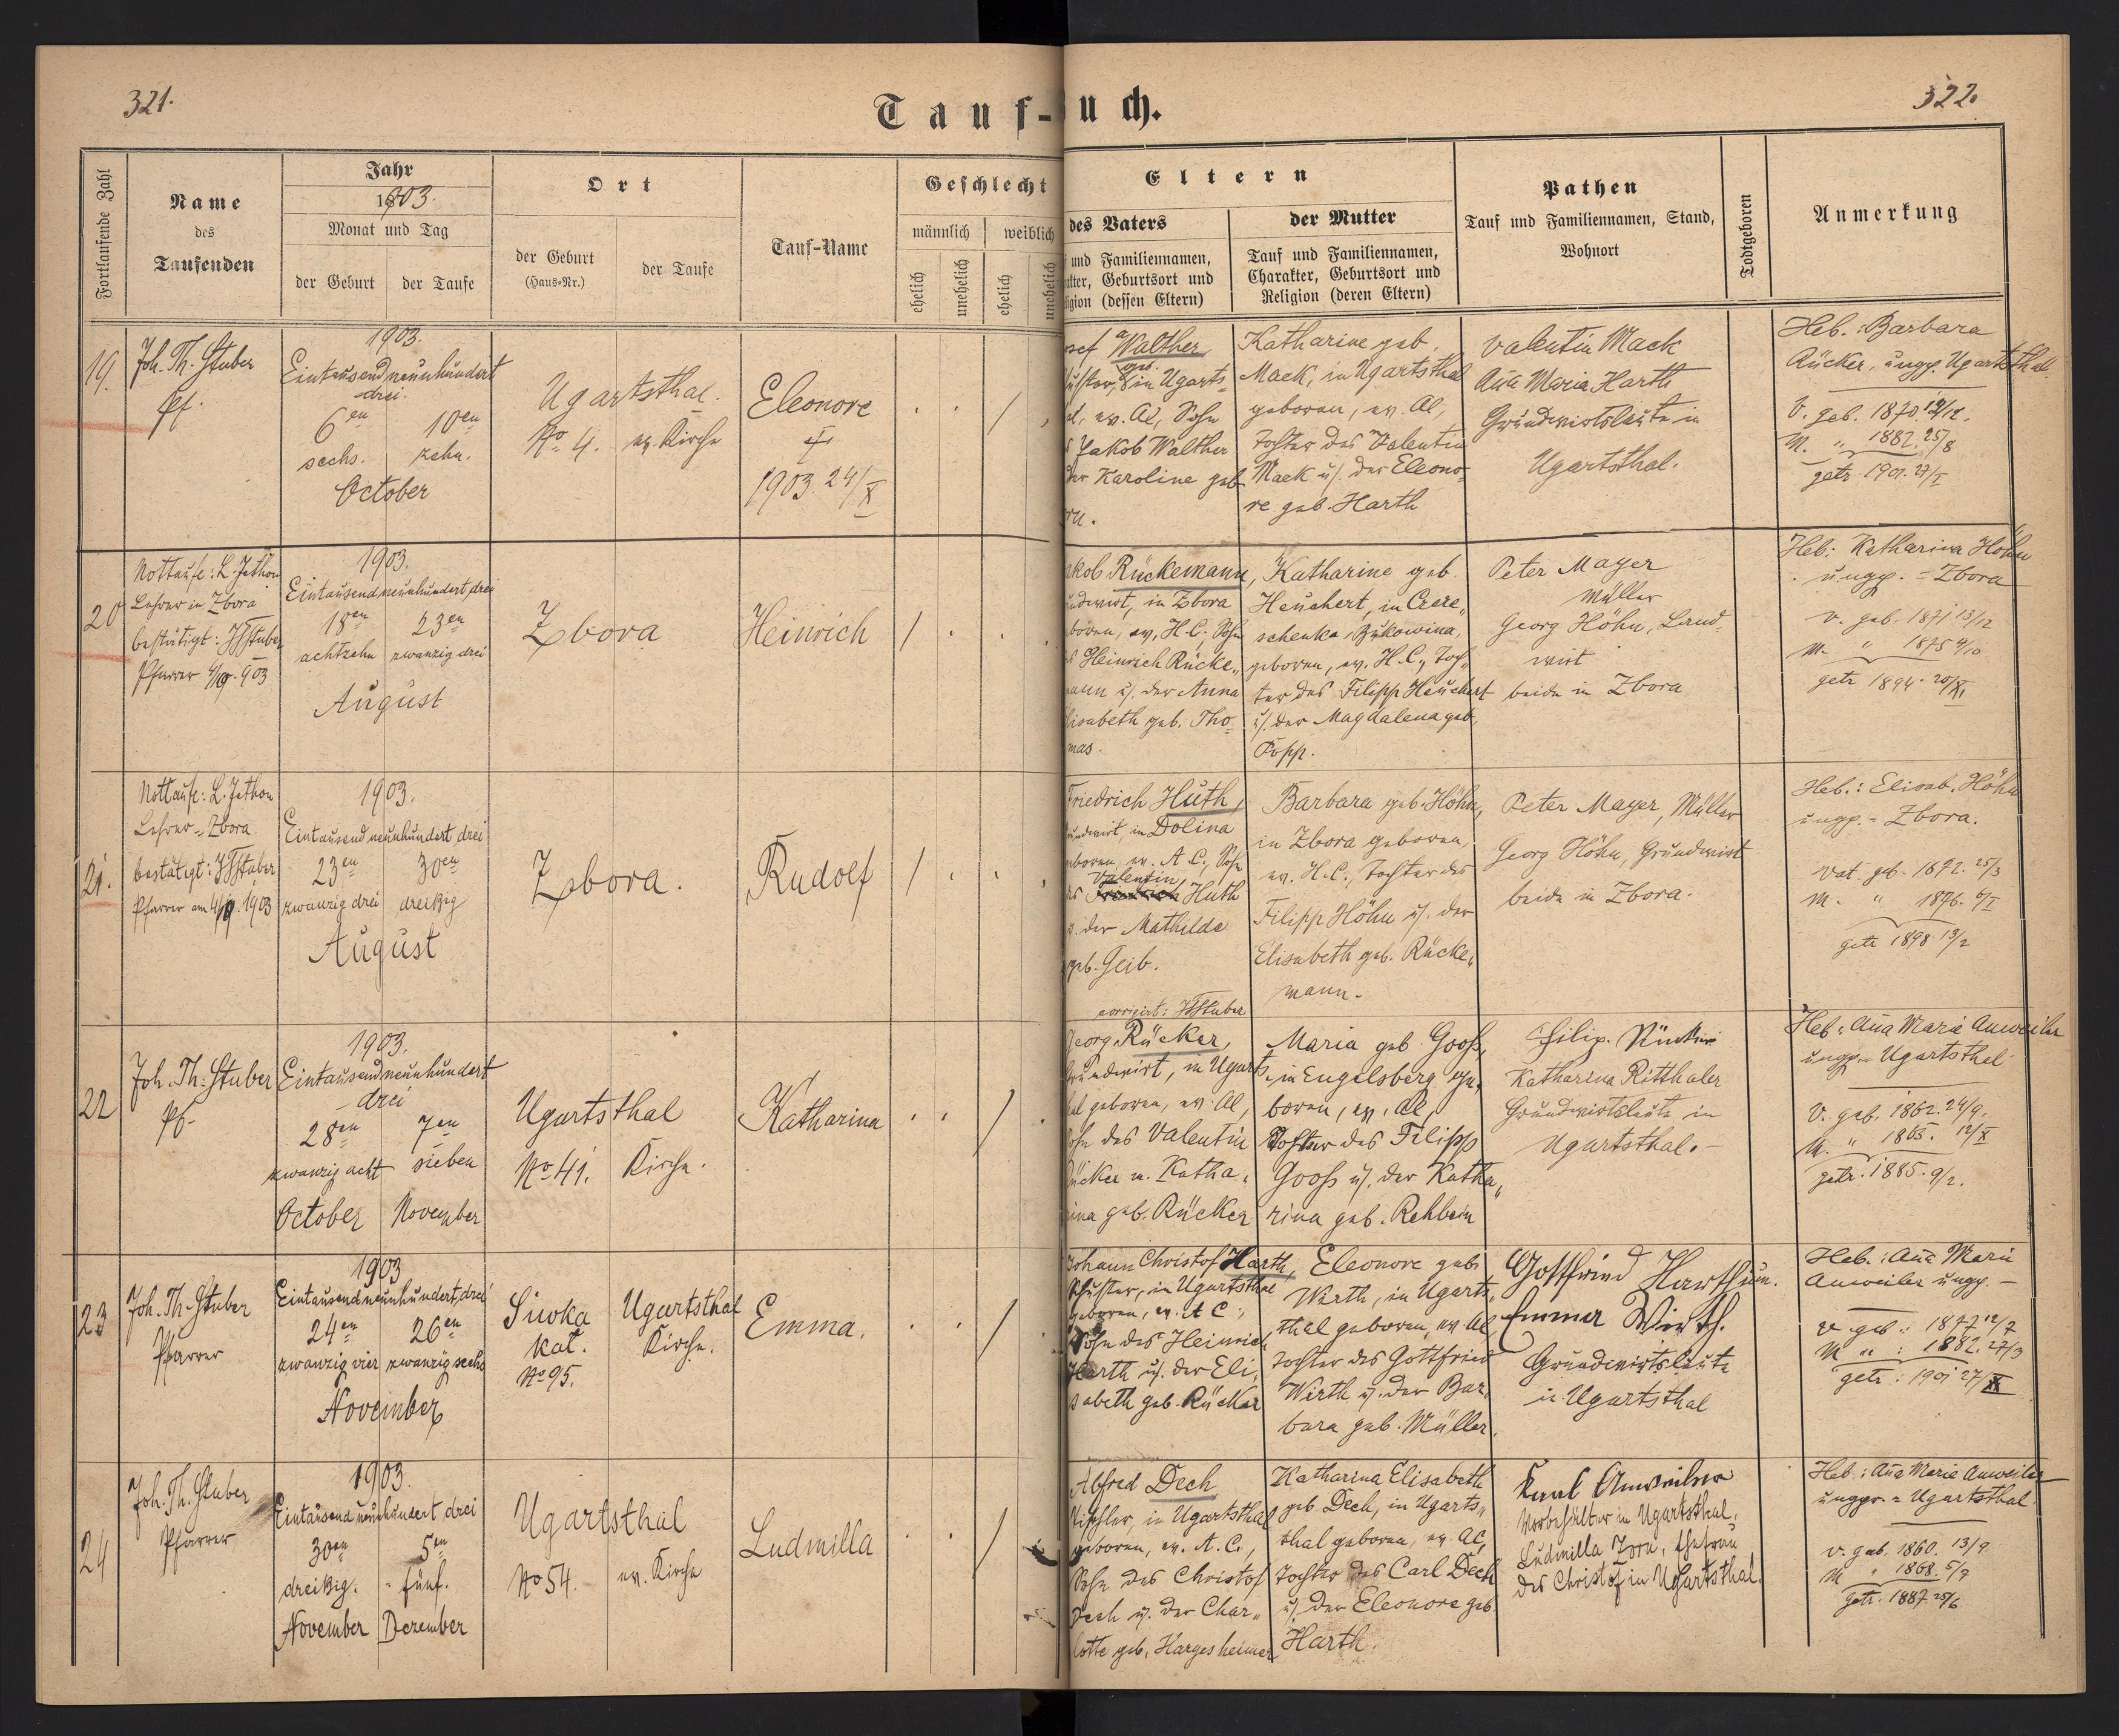 321.
322.
Tauf-uch.
Fortlaufende Zahl
Name
des
Taufenden
Jahr
1903.
Monat und Tag
der Geburt
der Taufe
Ort
der Geburt
(Haus-Nr.)
der Taufe
Tauf-Name
Geschlecht
männlich
weiblich
ehelich
unehelich
ehelich
unehelich
Eltern
des Vaters
und Familiennamen,
Geburtsort und
(dessen Eltern)
der Mutter
Tauf und Familiennamen,
Charakter, Geburtsort und
Religion (deren Eltern)
Pathen
Tauf und Familiennamen, Stand,
Wohnort
Todtgeboren
Anmerkung
19.
Joh. Th. Stuber
Pf.
1903.
Eintausend neunhundert
drei.
6en
10en
sechs.
zehn.
October
Ugartsthal.
No. 4.
ev. Kirche
Eleonore
1903. 24/X
Walther
in Ugarts-
ev. AC, Sohn
Jakob Walther
der Karoline geb
Katharine geb.
Mack, in Ugartsthal
geboren, ev. AC,
Tochter des Valentin
Mack u. der Eleono-
re geb. Harth
Valentin Mack
Aña Maria Harth
Grundwirtsleute in
Ugartsthal.
Heb.: Barbara
Rücker, ungp. Ugartsthal.
V. geb. 1870 19/12.
M. " 1882. 25/8
getr 1901. 27/I
20
Nottaufe: L. Jethon
Lehrer in Zbora
bestätigt: JThStuber
Pfarrer 4/19. 903
1903.
Eintausend neunhundert, drei
18en
23en
achtzehn
zwanzig drei
August
Zbora
Heinrich
Rückemann,
in Zbora
ev. H. C., Sohn
Heinrich Rücke-
u. der Anna
geb. Tho-
mas.
Katharine geb
Heuchert, in
schenka, Bukowina,
geboren, ev. H. C., Toch-
ter des Filipp Heuchert
u. der Magdalena geb.
Popp.
Peter Mayer
Müller
Georg Höhn, Land-
wirt
beide in Zbora
Heb: Katharina Höhn
ungp. = Zbora
v. geb. 1871 13/12
M. " 1875 9/10
getr 1894. 20/XI
21.
Nottaufe: L. Jethon
Lehrer = Zbora
bestätigt: JThStuber
Pfarrer am 4/19. 1903
1903.
Eintausend neunhundert drei
23en
30en
zwanzig drei
dreißig
August
Zbora.
Rudolf
Friedrich Huth,
in Dolina
ev. A C., Sohn
Valentin
Huth
u. der Mathilde
geb. Geib.
corrigirt: JThStuber
Barbara geb. Höhn,
in Zbora geboren,
ev. H. C., Tochter des
Filipp Höhn u. der
Elisabeth geb. Rücke-
mann.
Peter Mayer, Müller
Georg Höhn, Grundwirt
beide in Zbora.
Heb.: Elisab. Höhn
ungp. = Zbora.
Vat. geb. 1872. 25/3
M. " 1876. 6/I
getr 1898 13/2
22
Joh. Th. Stuber
Pf.
1903.
Eintausend neunhundert
drei
28en
7en
zwanzig acht
sieben
October
November
Ugartsthal
No 41.
Kirche.
Katharina
Georg Rücker,
Grundwirt, in Ugarts-
geboren, ev. AC,
Sohn des Valentin
Rücker u. Katha-
rina geb. Rücker
Maria geb. Gooß,
in Engelsberg ge-
boren, ev. AC,
Tochter des Filipp
Gooß u. der Katha-
rina geb. Rehbein
Filip. Rücker
Katharina Ritthaler
Grundwirtsleute in
Ugartsthal. -
Heb: Aña Maria Anweiler
ungp. = Ugartsthal
V. geb. 1862. 24/9.
M. " 1865. 12/X
getr. 1885. 9/2.
23
Joh. Th. Stuber
Pfarrer
1903
Eintausend neunhundert, drei
24en
26en
zwanzig vier
zwanzig sechs
November
Siwka
kat.
No 95.
Ugartsthal
Kirche.
Emma.
Johann Christof Harth,
Schuster, in Ugartsthal
geboren, ev. A C.,
Sohn des Heinrich
Harth u. der Eli-
sabeth geb. Rücker
Eleonore geb.
Wirth, in Ugarts-
thal geboren, ev. AC,
Tochter des Gottfried
Wirth u. der Bar-
bara geb. Müller.
Gottfried Harth jun.
Emma Wirth.
Grundwirtsleute
in Ugartsthal
Heb.: Aña Maria
Anweiler ungp. -
V. geb.: 1877 12/7
M " : 1882. 27/3
getr.: 1901 27/X
24
Joh. Th. Stuber
Pfarrer
1903.
Eintausend neunhundert drei
30en
5en
dreißig.
- fünf.
November
Dezember
Ugartsthal
No 54.
ev. Kirche
Ludmilla
Alfred Dech
Tischler, in Ugartsthal
geboren, ev. A. C.,
Sohn des Christof
Dech u. der Char-
lotte geb. Hargesheimer
Katharina Elisabeth
geb. Dech, in Ugarts-
thal geboren, ev. AC,
Tochter des Carl Dech
u. der Eleonore geb
Harth.
Karl Anweiler
in Ugartsthal,
Ludmilla Zorn, Ehefrau
des Christof in Ugartsthal.
Heb.: Aña Maria Anweiler
ungpr. = Ugartsthal.
V. geb. 1860. 13/9
M " 1868. 5/7
getr. 1887 25/6